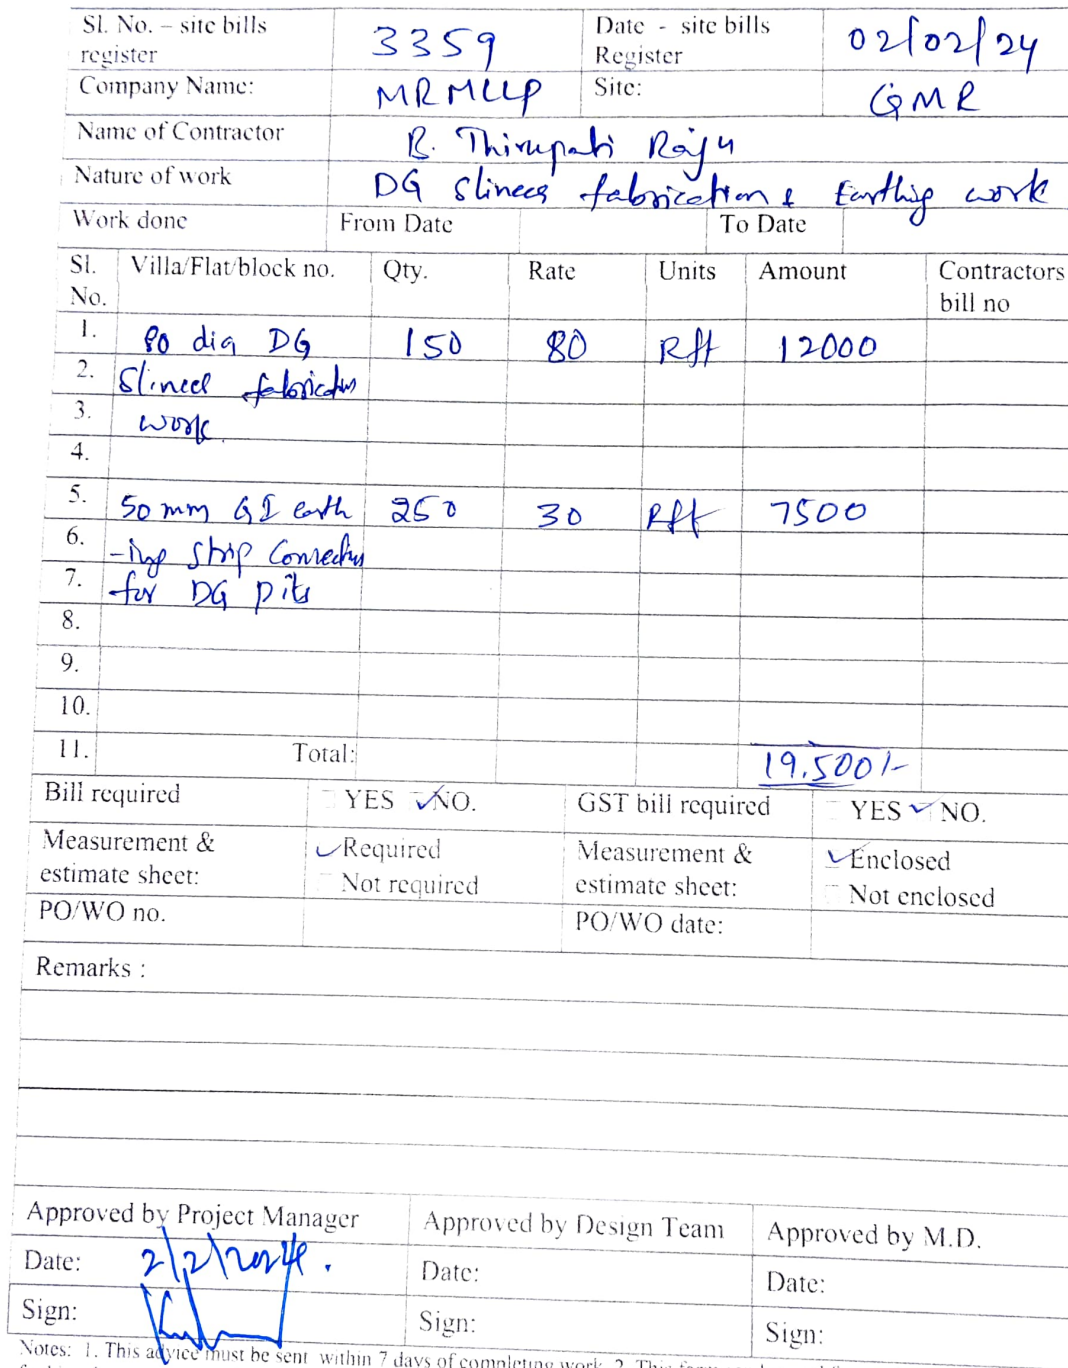 Sl. No. – site bills register 3359 Date - site bills Register 02/02/24
Company Name: MRMLLP Site: GMR
Name of Contractor B. Thirupati Raju
Nature of work DG Slineer fabrication & Earthing work
Work done From Date To Date
Sl. No. Villa/Flat/block no. Qty. Rate Units Amount Contractors bill no
1. 80 dia DG 150 80 Rft 12000
2. Slineer fabrication
3. work.
4.
5. 50 mm GI earth 250 30 Rft 7500
6. -ing strip Connection
7. for DG pits
8.
9.
10.
11. Total: 19,500/-
Bill required YES NO. GST bill required YES NO.
Measurement & estimate sheet: Required Not required Measurement & estimate sheet: Enclosed Not enclosed
PO/WO no. PO/WO date:
Remarks :
Approved by Project Manager Approved by Design Team Approved by M.D.
Date: 2/2/2024. Date: Date:
Sign: Sign: Sign:
Notes: 1. This advice must be sent within 7 days of completing work. 2. This